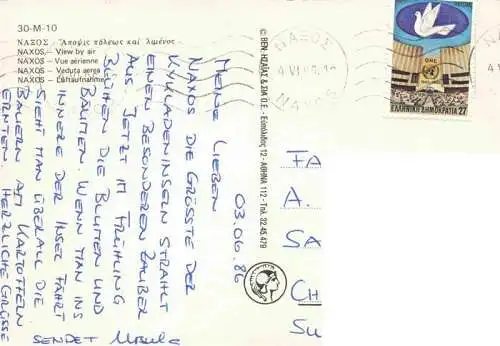 30-M-10
ΝΑΞΟΣ - Ἄποψις πόλεως καί λιμένος -
NAXOS.— View by air
NAXOS.— Vue aérienne
NAXOS.— Veduta aerea
NAXOS.— Luftaufnahme
03.06.86
MEINE LIEBEN
NAXOS DIE GRÖSSTE DER
KYKLADENINSELN STRAHLT
EINEN BESONDEREN ZAUBER
AUS. JETZT IM FRÜHLING
BLÜHEN DIE BLUMEN UND
BÄUMEN. WENN MAN INS
INNERE DER INSEL FÄHRT
SIEHT MAN ÜBERALL DIE
BAUERN AM KARTOFFELN
ERNTEN. HERZLICHE GRÜSSE
SENDET Ursula
© ΒΕΝ. ΗΣΑΪΑΣ & ΣΙΑ Ο.Ε. - Ευπόλιδος 12 - ΑΘΗΝΑ 112 - Τηλ. 32.45.479
FA
A.
SA
CH
SU
ΝΑΞΟΥ
NAXOS
ΟΗΕ
ΕΛΛΗΝΙΚΗ ΔΗΜΟΚΡΑΤΙΑ 27